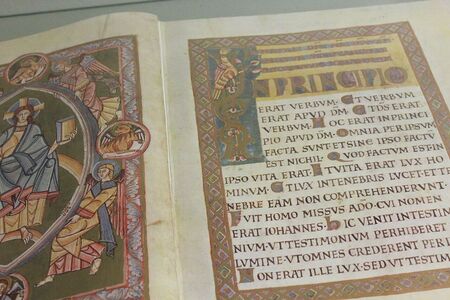 IN PRINCIPIO
ERAT VERBUM· ET VERBUM
ERAT APUD DM̄· ET DS̄ ERAT
VERBUM· HOC ERAT IN PRINCI
PIO APUD DM̄· OMNIA PER IPSUM
FACTA SUNT· ET SINE IPSO FACTŪ
EST NICHIL· QUOD FACTUM EST IN
IPSO VITA ERAT· ET VITA ERAT LUX HO
MINUM· ET LUX IN TENEBRIS LUCET· ET TE
NEBRE EAM NON COMPREHENDERUNT·
FUIT HOMO MISSUS A DO̅ CUI NOMEN
ERAT IOHANNES· HIC VENIT IN TESTIMO
NIUM· UT TESTIMONIUM PERHIBERET
LUMINE· UT OMNES CREDERENT PER
NON ERAT ILLE LUX· SED UT TESTIM